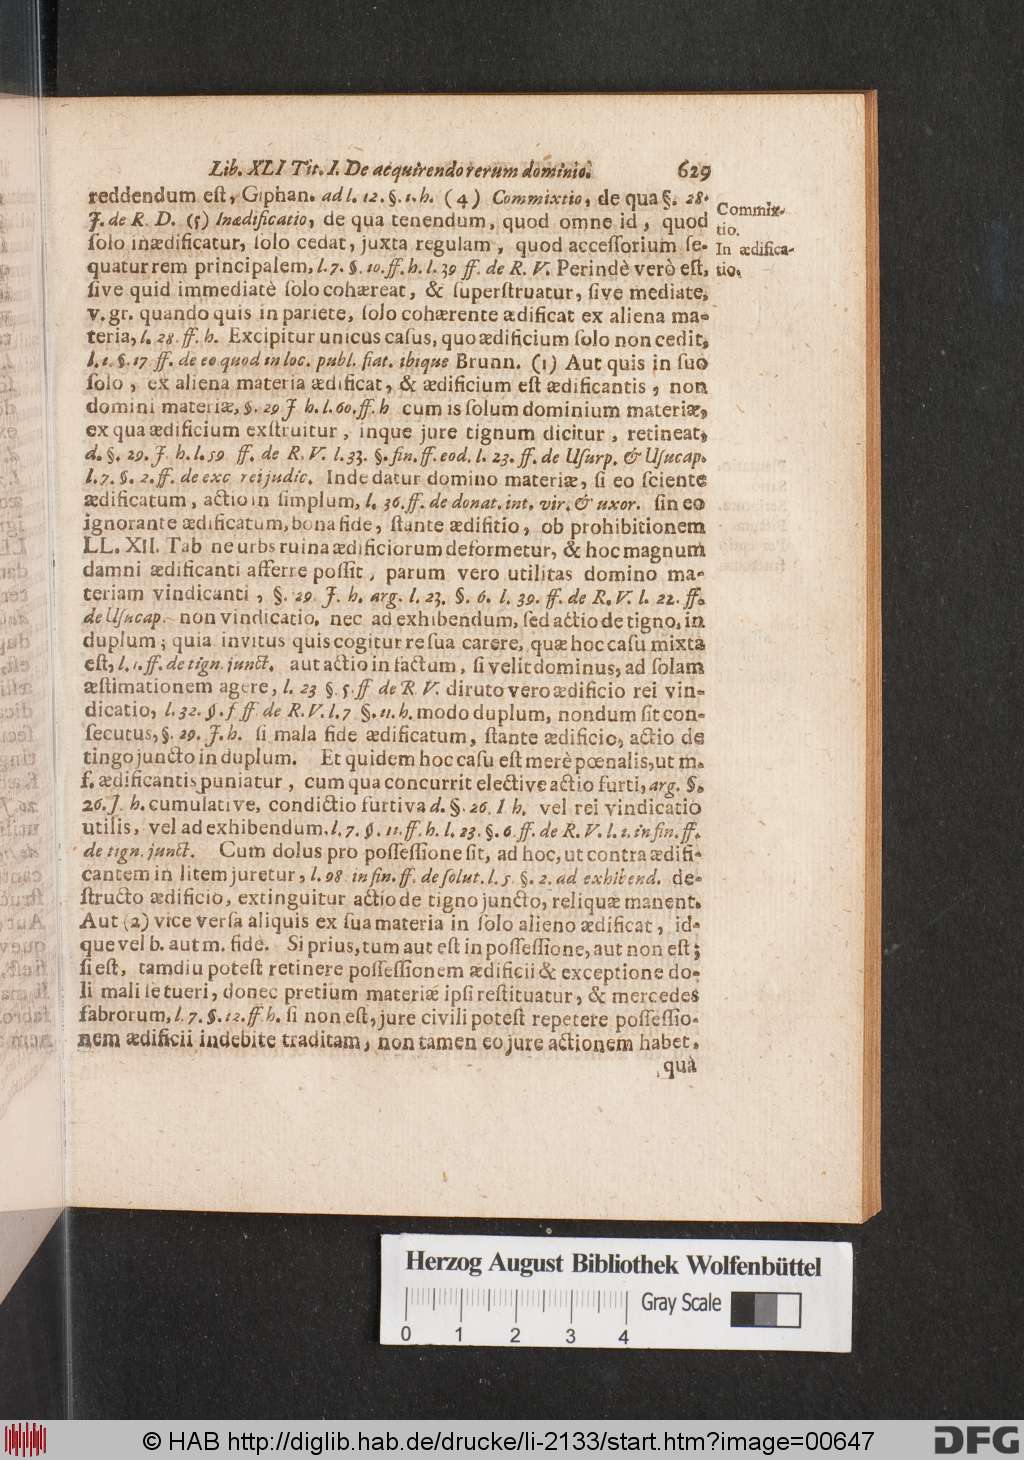 Lib. XLI Tit. I. De acquirendo rerum dominio. 629
reddendum eſt, Giphan. ad l. 12. §. 1. h. (4) Commixtio, de qua §. 28.
J. de R. D. (5) Inædificatio, de qua tenendum, quod omne id, quod
ſolo inædificatur, ſolo cedat, juxta regulam, quod acceſſorium ſe-
quatur rem principalem, l. 7. §. 10. ff. h. l. 39 ff. de R. V. Perindè verò eſt,
ſive quid immediatè ſolo cohæreat, & ſuperſtruatur, ſive mediate,
v. gr. quando quis in pariete, ſolo cohærente ædificat ex aliena ma-
teria, l. 28. ff. h. Excipitur unicus caſus, quo ædificium ſolo non cedit,
l. 1. §. 17 ff. de eo quod in loc. publ. fiat. ibique Brunn. (1) Aut quis in ſuo
ſolo, ex aliena materia ædificat, & ædificium eſt ædificantis, non
domini materiæ, §. 29 J h. l. 60. ff. h cum is ſolum dominium materiæ,
ex qua ædificium exſtruitur, inque jure tignum dicitur, retineat,
d. §. 29. J. h. l. 59 ff. de R. V. l. 33. §. fin. ff. eod. l. 23. ff. de Uſurp. & Uſucap.
l. 7. §. 2. ff. de exc rei judic. Inde datur domino materiæ, ſi eo ſciente
ædificatum, actio in ſimplum, l. 36. ff. de donat. int. vir. & uxor. ſin eo
ignorante ædificatum, bona fide, ſtante ædifitio, ob prohibitionem
LL. XII. Tab ne urbs ruina ædificiorum deformetur, & hoc magnum
damni ædificanti afferre poſſit, parum vero utilitas domino ma-
teriam vindicanti, §. 29. J. h. arg. l. 23. §. 6. l. 39. ff. de R. V. l. 22. ff.
de Uſucap. non vindicatio, nec ad exhibendum, ſed actio de tigno, in
duplum; quia invitus quis cogitur re ſua carere, quæ hoc caſu mixta
eſt, l. 1. ff. de tign. junct. aut actio in factum, ſi velit dominus, ad ſolam
æſtimationem agere, l. 23 §. 5. ff de R. V. diruto vero ædificio rei vin-
dicatio, l. 32. §. f ff de R. V. l. 7 §. 11. h. modo duplum, nondum ſit con-
ſecutus, §. 29. J. h. ſi mala fide ædificatum, ſtante ædificio, actio de
tingo juncto in duplum. Et quidem hoc caſu eſt merè pœnalis, ut m.
f. ædificantis puniatur, cum qua concurrit elective actio furti, arg. §.
26. J. h. cumulative, condictio furtiva d. §. 26. I h. vel rei vindicatio
utilis, vel ad exhibendum. l. 7. §. 11. ff. h. l. 23. §. 6. ff. de R. V. l. 1. in fin. ff.
de tign. junct. Cum dolus pro poſſeſſione ſit, ad hoc, ut contra ædifi-
cantem in litem juretur, l. 98 in fin. ff. de ſolut. l. 5 §. 2. ad exhibend. de-
ſtructo ædificio, extinguitur actio de tigno juncto, reliquæ manent.
Aut (2) vice verſa aliquis ex ſua materia in ſolo alieno ædificat, id-
que vel b. aut m. fide. Si prius, tum aut eſt in poſſeſſione, aut non eſt;
ſi eſt, tamdiu poteſt retinere poſſeſſionem ædificii & exceptione do-
li mali ſe tueri, donec pretium materiæ ipſi reſtituatur, & mercedes
fabrorum, l. 7. §. 12. ff. h. ſi non eſt, jure civili poteſt repetere poſſeſſio-
nem ædificii indebite traditam, non tamen eo jure actionem habet,
quà
Commix-
tio.
In ædifica-
tio.
Herzog August Bibliothek Wolfenbüttel
Gray Scale
0 1 2 3 4
© HAB http://diglib.hab.de/drucke/li-2133/start.htm?image=00647
DFG